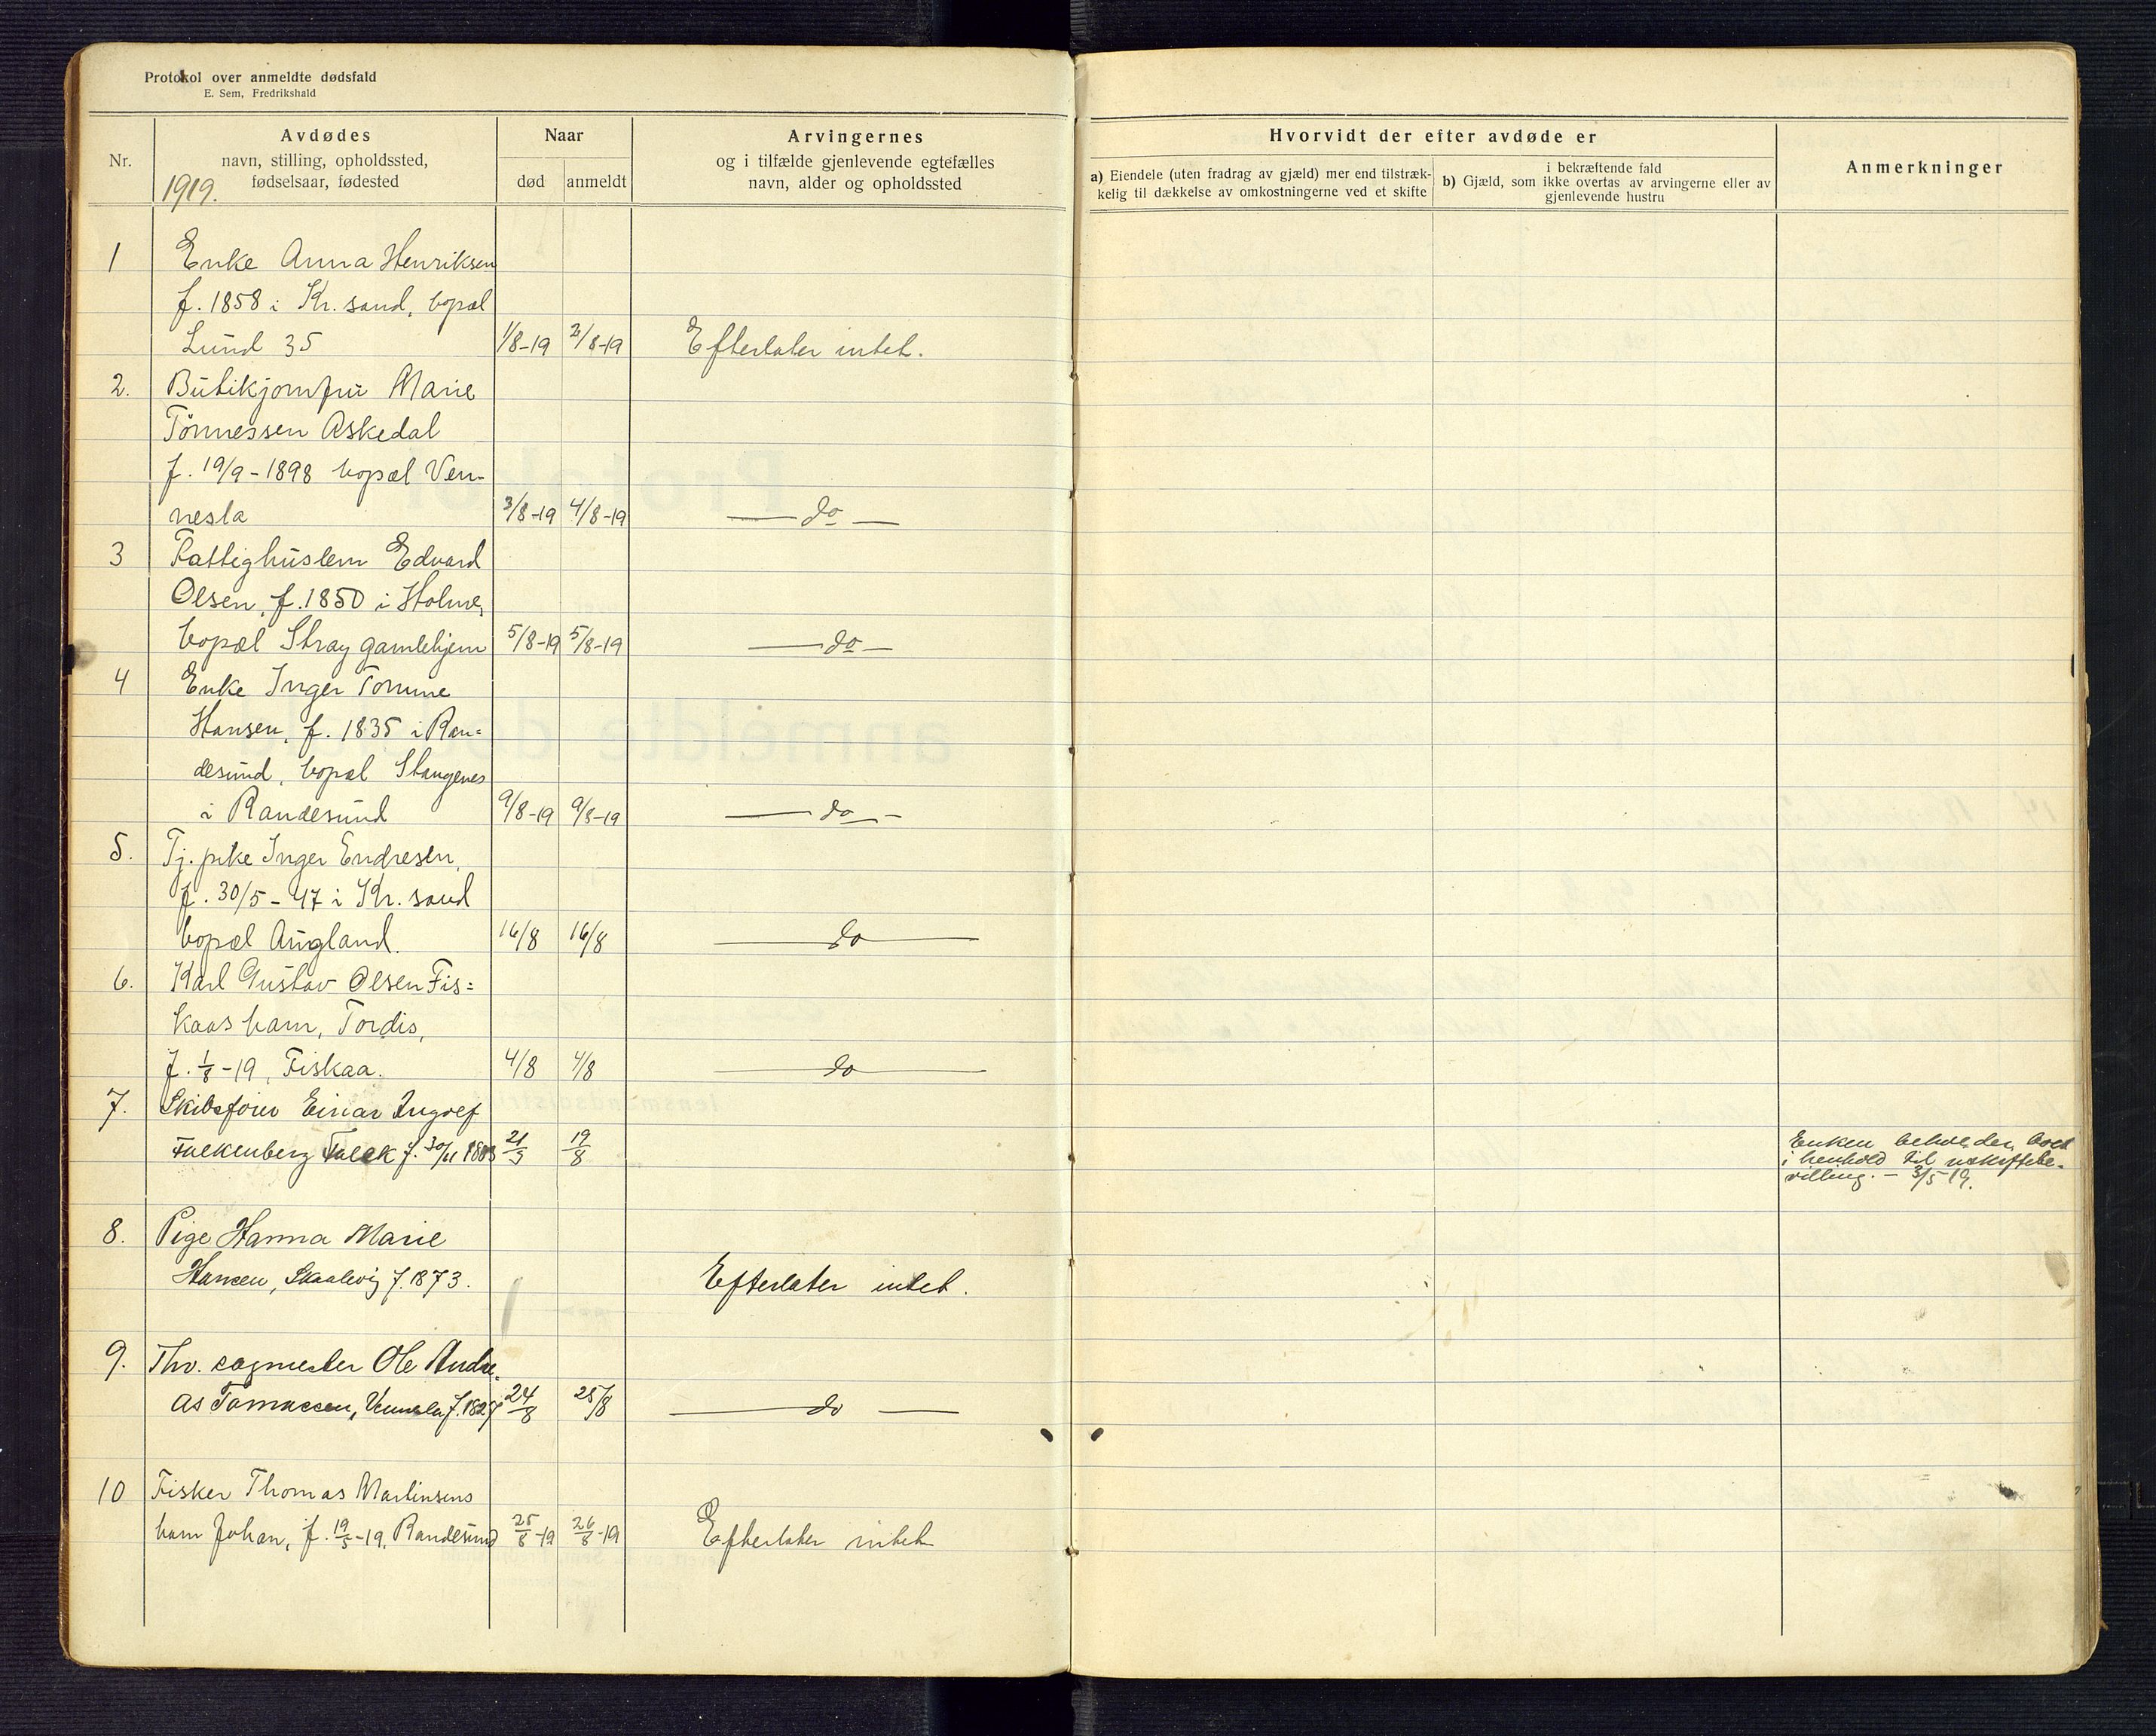 Protokol over anmeldte dødsfald
E. Sem, Fredrikshald
Nr.
Avdødes
navn, stilling, opholdssted,
fødselsaar, fødested
1919.
Naar
død
anmeldt
Arvingernes
og i tilfælde gjenlevende egtefælles
navn, alder og opholdssted
Hvorvidt der efter avdøde er
a) Eiendele (uten fradrag av gjæld) mer end tilstræk-
kelig til dækkelse av omkostningerne ved et skifte
i bekræftende fald
b) Gjæld, som ikke overtas av arvingerne eller av
gjenlevende hustru
Anmerkninger
1 Enke Anna Henriksen
f. 1858 i Kr. sand, bopæl
Lund 35 1/8-19 2/8-19 Efterlater intet.
2. Butikjomfru Marie
Tönnessen Askedal
f. 19/9-1898 bopæl Ven-
nesla 3/8-19 4/8-19 do
3 Fattighuslem Edvard
Olsen, f. 1850 i Holme,
bopæl Stray gamlehjem 5/8-19 5/8-19 do
4 Enke Inger Tomine
Hansen, f. 1835 i Ran=
desund, bopæl Stangenes
i Randesund 9/8-19 9/8-19 do
5. Tj. pike Inger Endresen,
f. 30/5-47 i Kr. sand
bopæl Augland. 16/8 16/8 do
6. Karl Gustav Olsen Fis=
kaas barn, Tordis,
f. 1/8-19, Fiskaa. 4/8 4/8 do
7. Skibsfører Einar Ingolf
Falkenberg Falck f. 30/11 1883 21/3 19/8
Enken beholder boet
i henhold til uskiftebe-
villing. - 3/5 19.
8. Pige Hanna Marie
Hansen, Skaalevig f. 1873. Efterlater intet.
9. Fhv. sagmester Ole Andre-
as Tomassen, Vennesla f. 1827 24/8 25/8 do
10 Fisker Thomas Martinsens
barn Johan, f. 19/5-19, Randesund 25/8-19 26/8-19 Efterlater intet